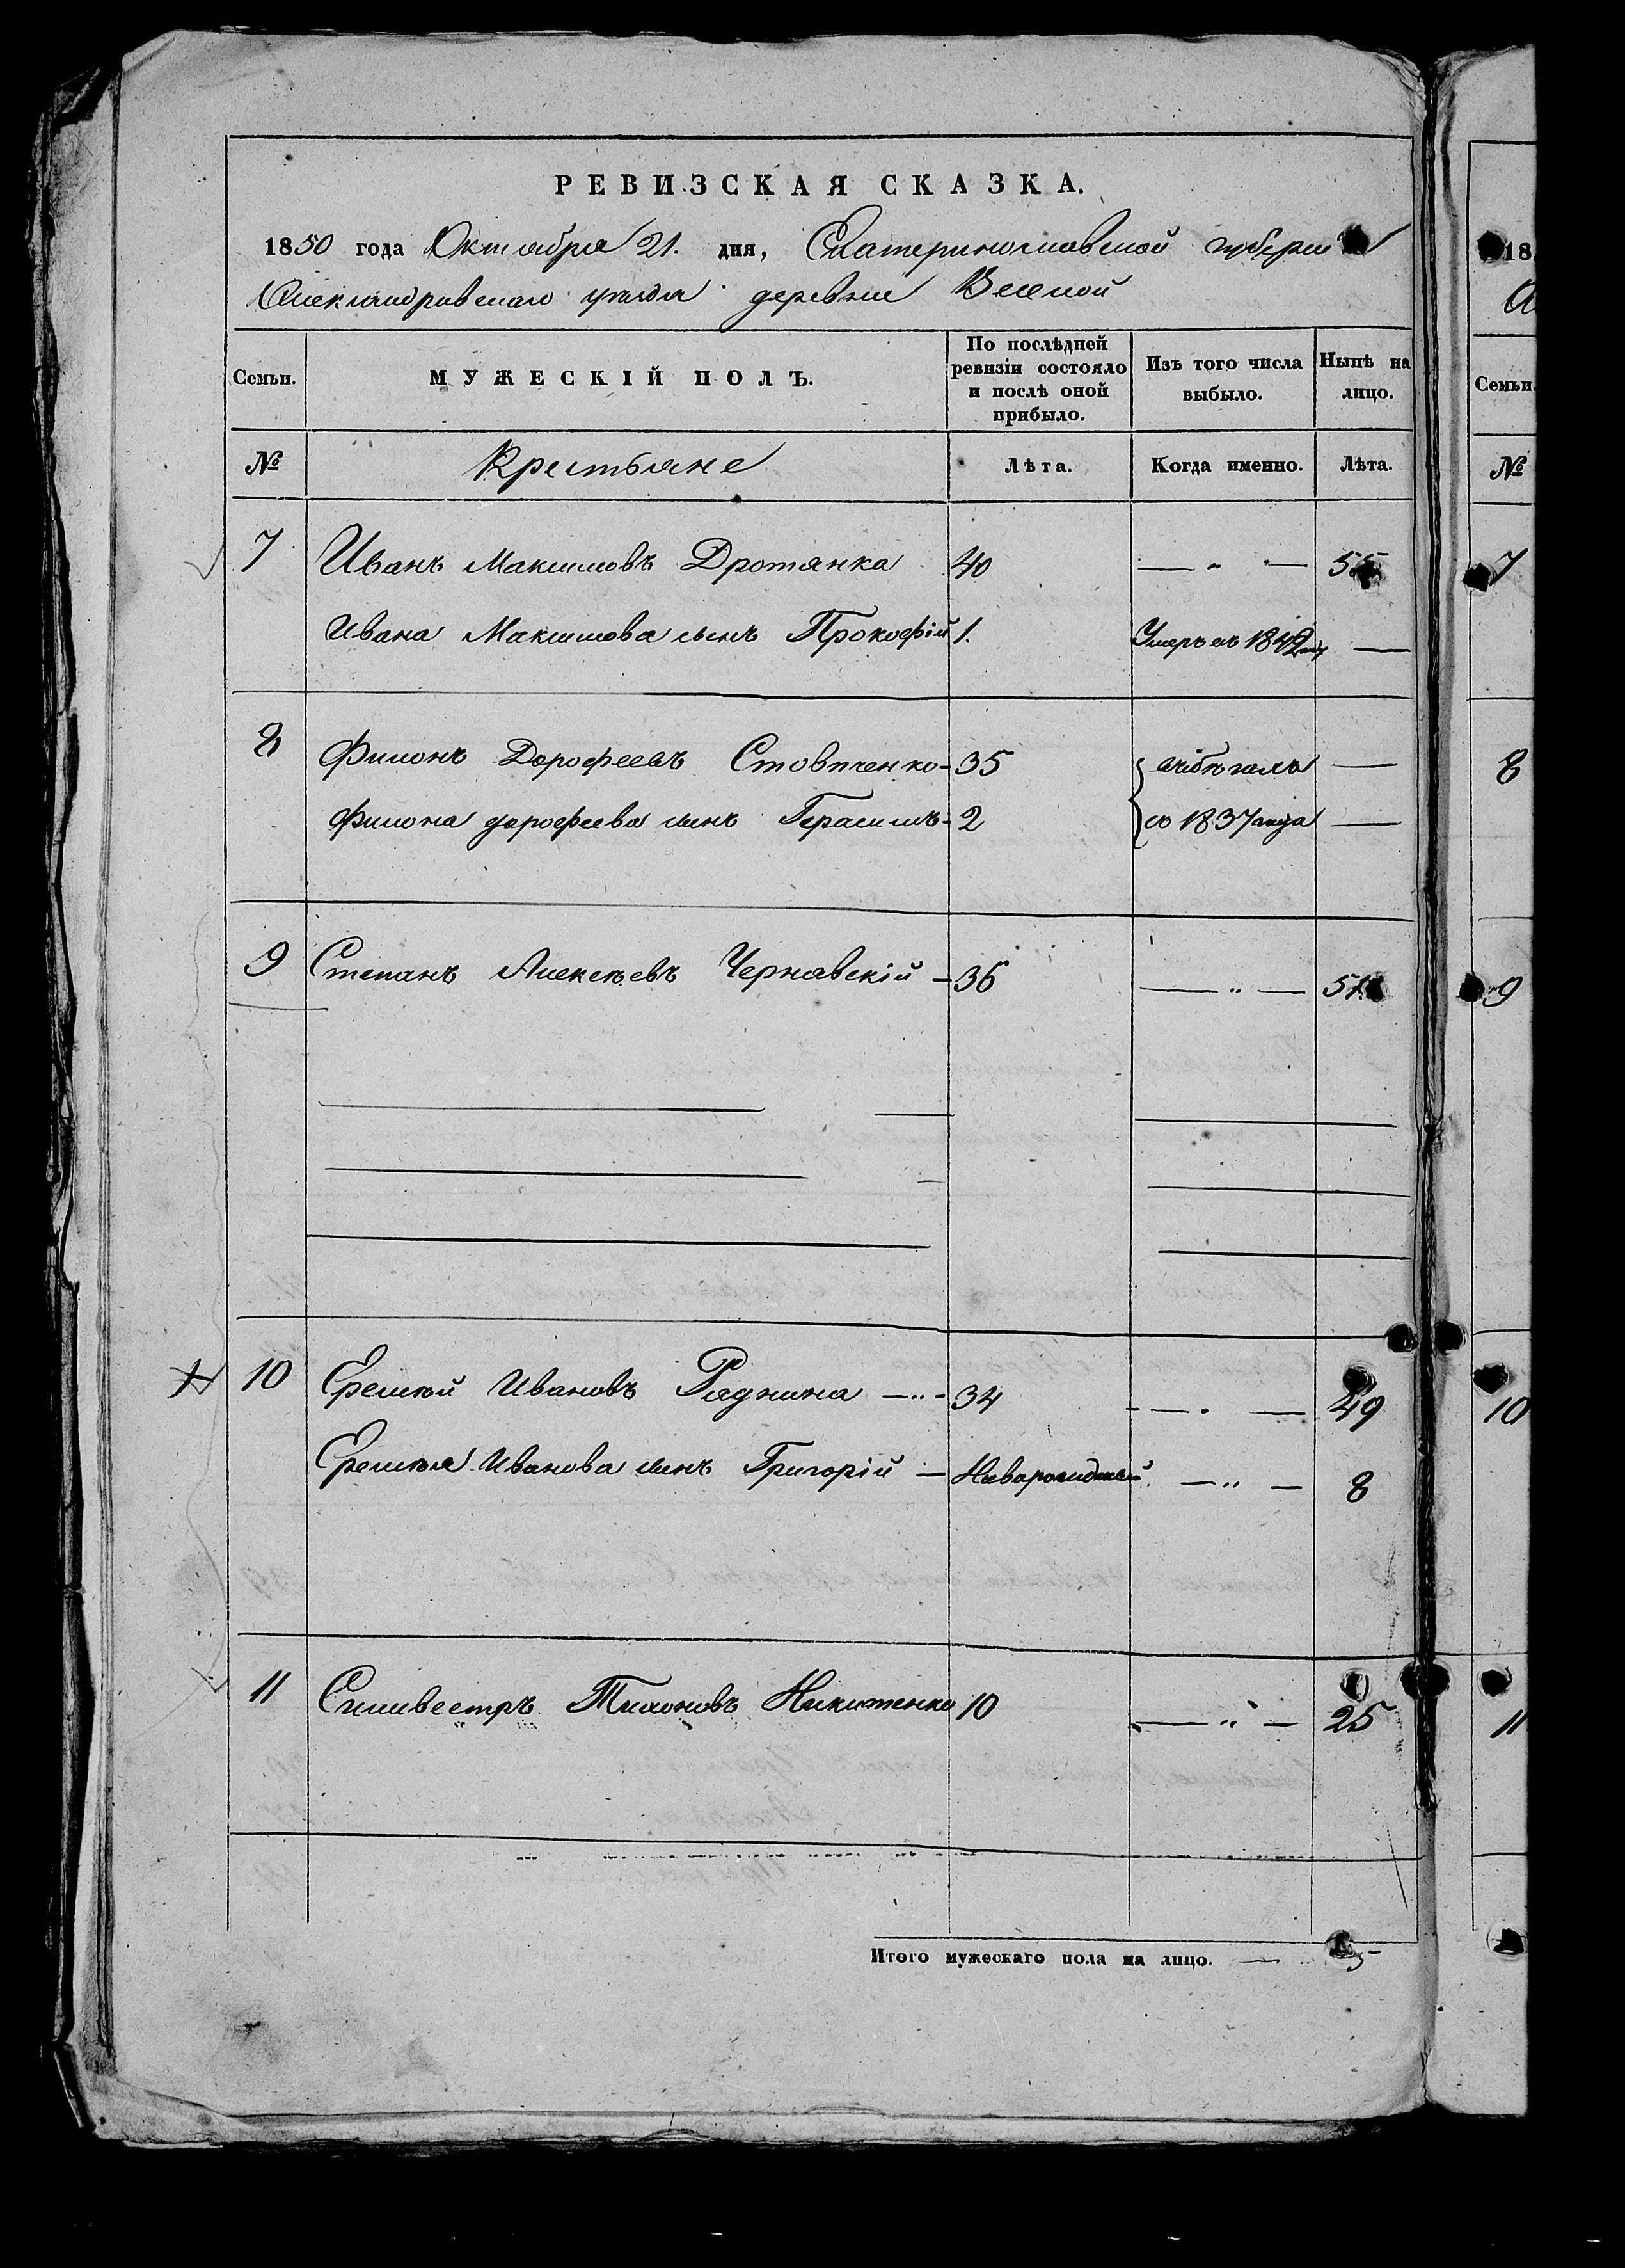 РЕВИЗСКАЯ СКАЗКА.
1850 года Октября 21. дня, Екатеринославской губернии
Александровскаго уѣзда деревни Веселой
Семьи. МУЖЕСКІЙ ПОЛЪ. По послѣдней ревизіи состояло и послѣ оной прибыло. Изъ того числа выбыло. Нынѣ на лицо.
№ Крестьяне Лѣта. Когда именно. Лѣта.
7 Иванъ Максимовъ Дротянка 40 — „ — 55
Ивана Максимова сынъ Прокофій 1. Умеръ въ 1842 —
8 Филонъ Дорофеевъ Стовпченко - 35 —
Филона дорофеева сынъ Герасимъ - 2 съ 1837 года —
9 Степанъ Алексѣевъ Чернявскій - 36 — „ — 51
10 Еремѣй Ивановъ Раднина — 34 — 49
Еремѣя Иванова сынъ Григорій — Новорожденный — „ — 8
11 Силивестръ Тихоновъ Никитенко 10 — „ — 25
Итого мужескаго пола на лицо. — 5
18
А
Семьи.
№
7
8
9
10
11